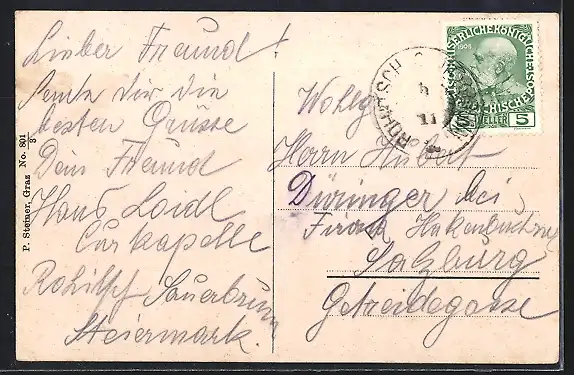 Lieber Freund!
Sende Dir die
besten Grüsse
Dein Freund
Hans Loidl
Curkapelle
Rohitsch Sauerbrunn
Steiermark.
P. Steiner, Graz No. 801/3
ROHITSCH
KAISERLICHE KÖNIGLICHE ÖSTERREICHISCHE POST
1908
5 HELLER 5
Wohlg.
Herrn Hubert
Düringer bei
Firma
Salzburg
Getreidegasse